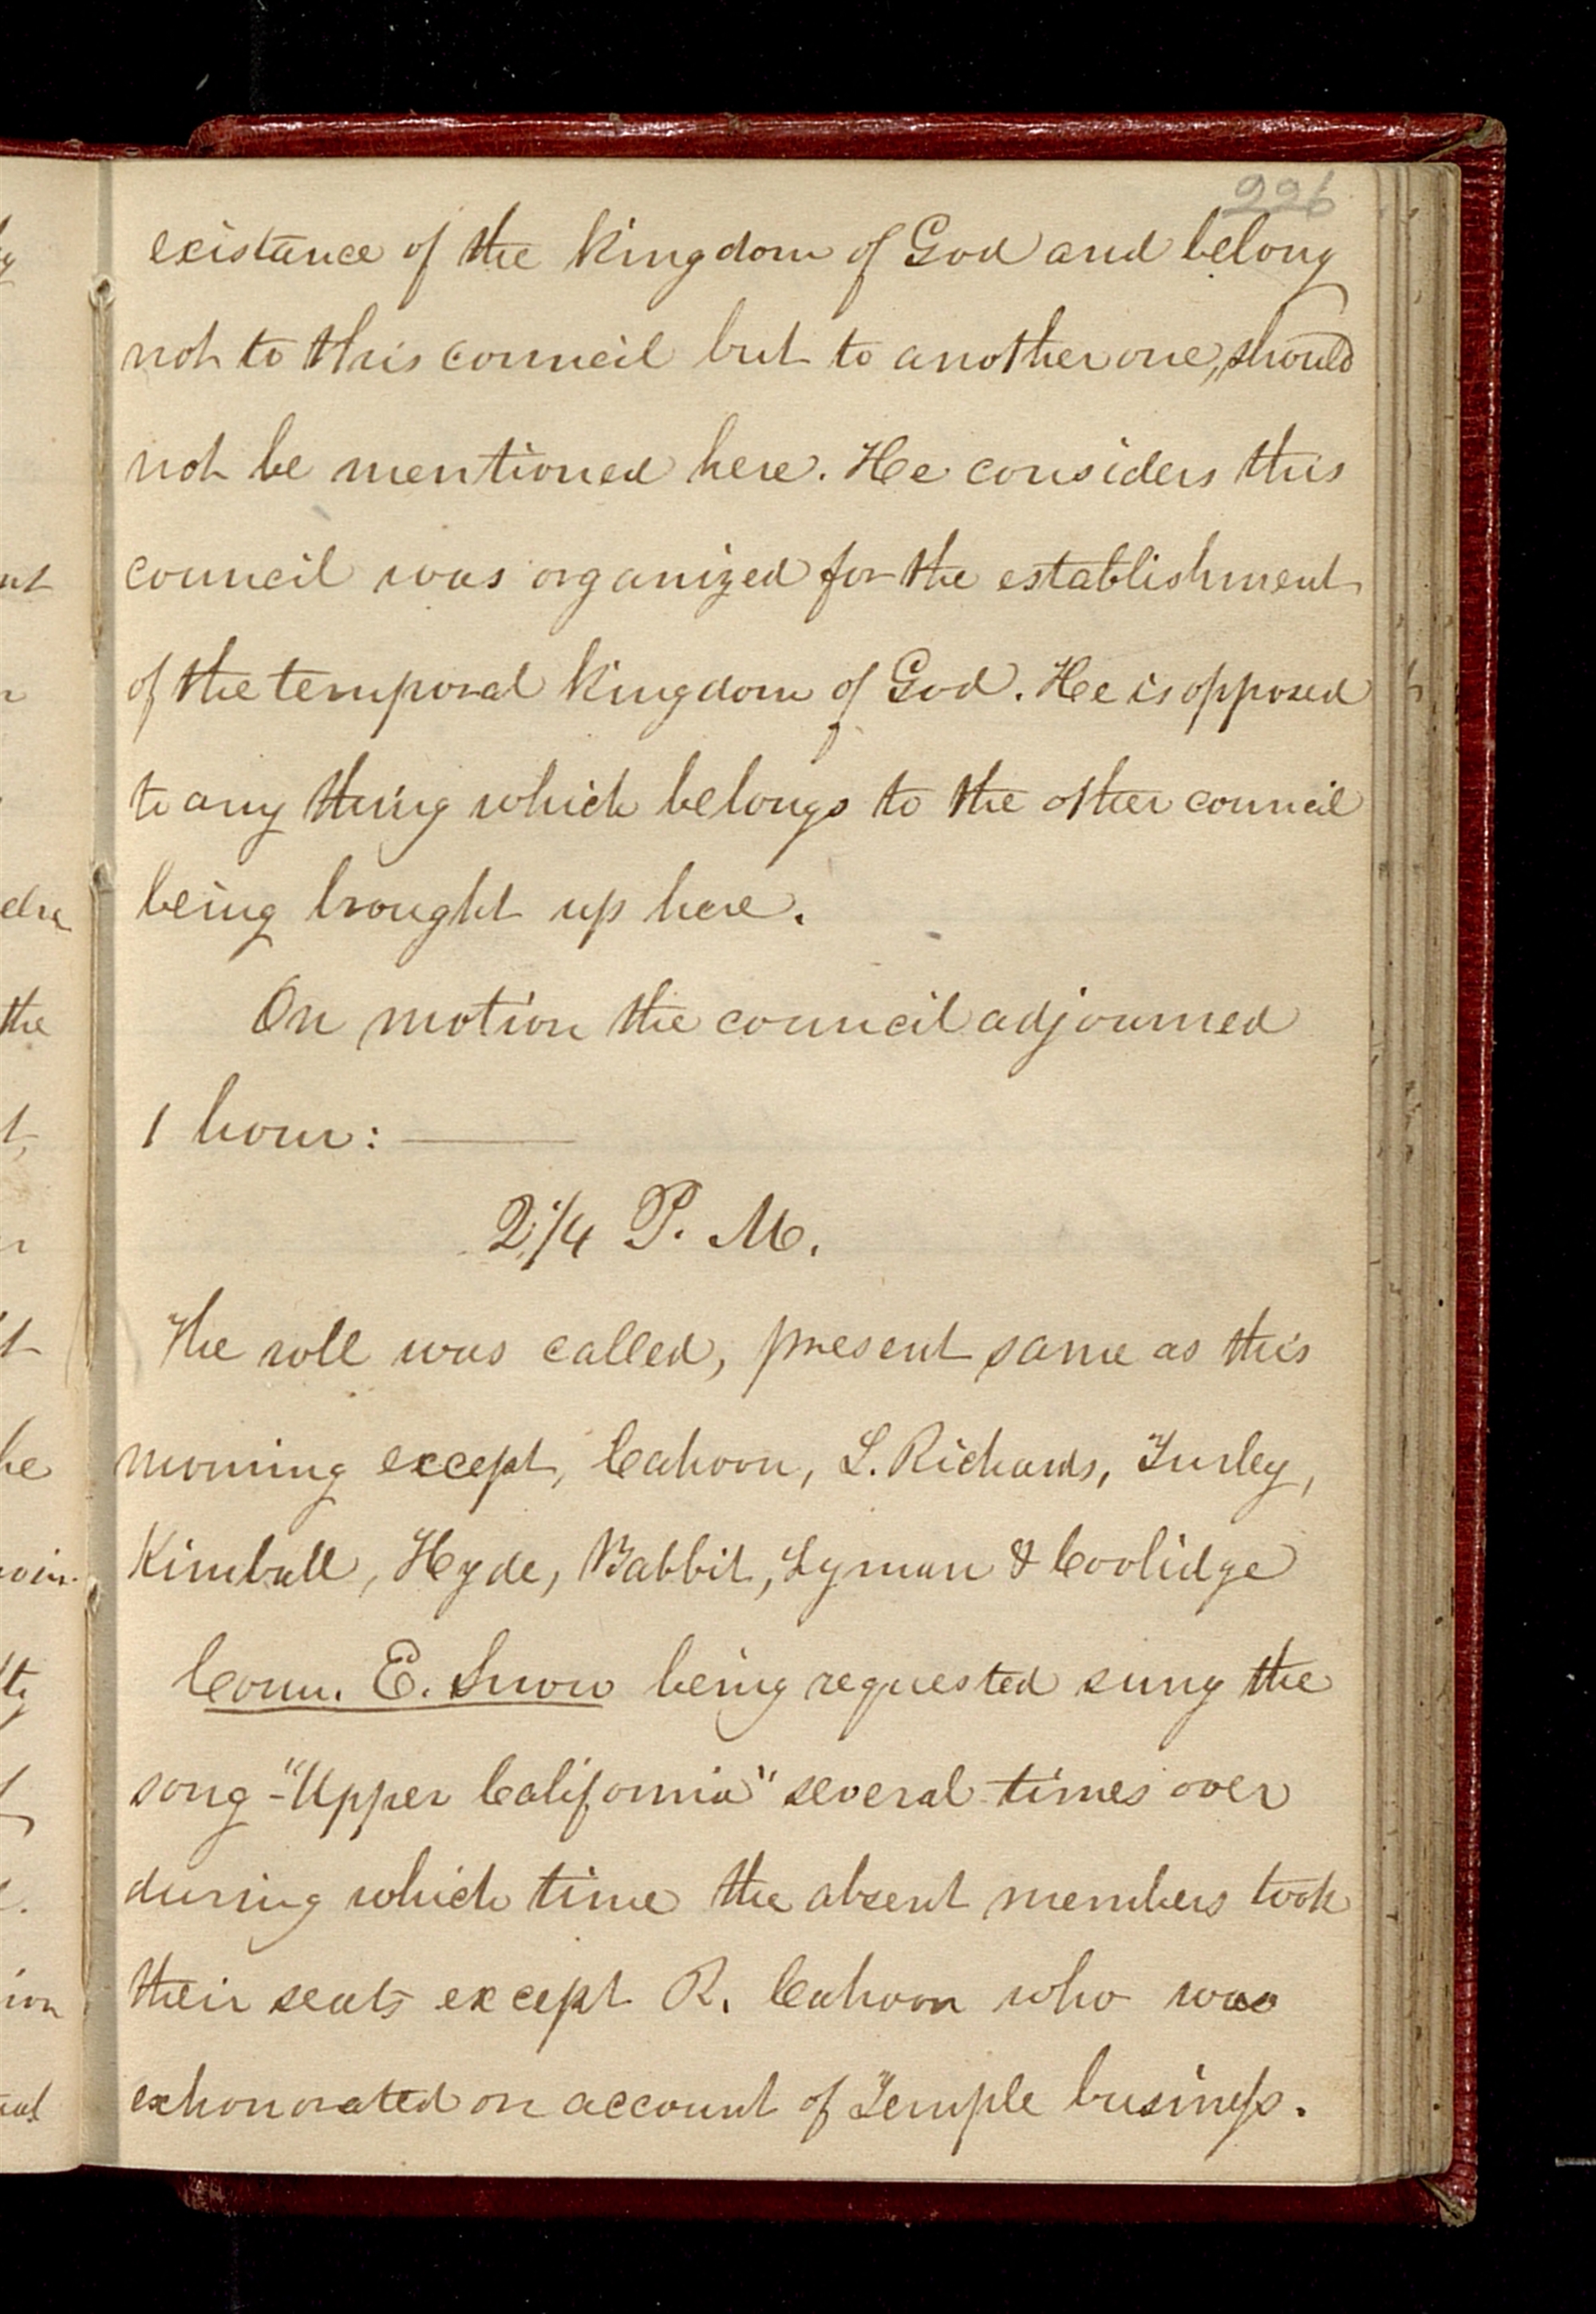 226
existance of the kingdom of God and belong
not to this council but to another one, should
not be mentioned here. He considers this
council was organized for the establishment
of the temporal kingdom of God. He is opposed
to any thing which belongs to the other council
being brought up here.
On motion the council adjourned
1 hour: ———
2 1/4 P. M.
The roll was called, present same as this
morning except, Cahoon, L. Richards, Turley,
Kimball, Hyde, Babbit, Lyman & Coolidge
Coun. E. Snow being requested sung the
song - "Upper California" several times over
during which time the absent members took
their seats except R. Cahoon who was
exhonorated on account of Temple business.